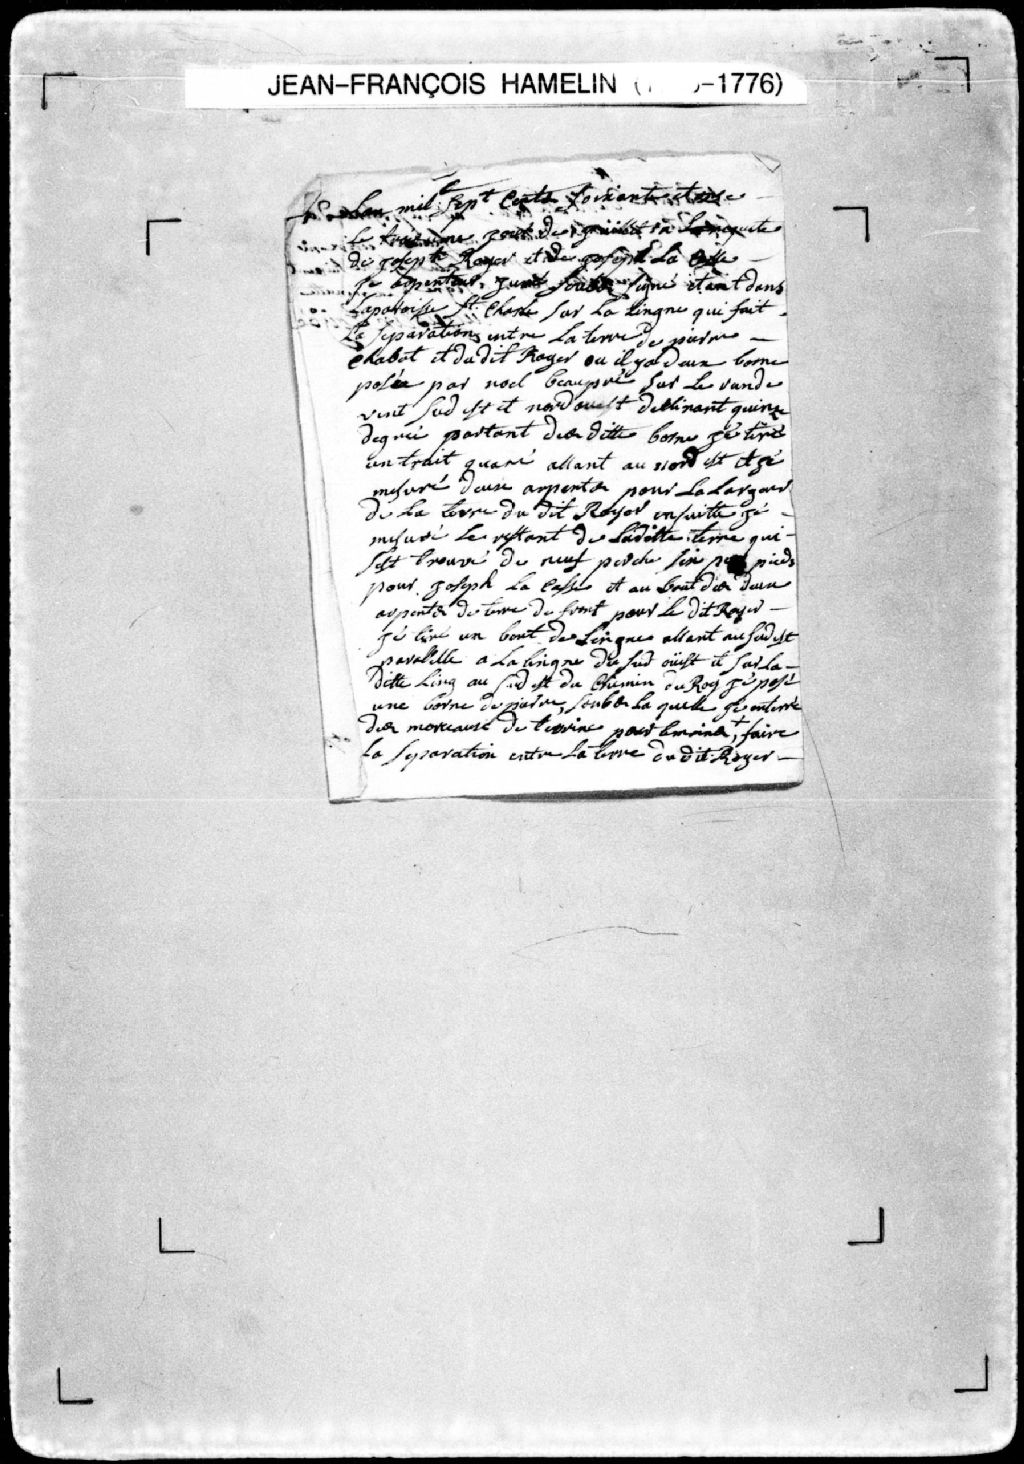 JEAN-FRANÇOIS HAMELIN ( -1776)
Lan mil Sept Cents Soixante et
le troisieme jour de juillet a la requete
de joseph Royer et de joseph La Casse
je arpenteur juré soubs signé etant dans
laparoisse St. Charle sur la lingne qui fait
La Separation entre La terre de pierre
Chabot et du dit Royer ou il ya deux borne
posée par noel beaupré sur le runde
vent sud est et nord ouest declinant quinze
degrée partant des ditte borne jé tiré
un trait quaré allant au nord est et jé
mesuré deux arpents pour La Largeur
de La terre du dit Royer ensuitte jé
mesuré le restant de Laditte terre qui
sest trouvé de neuf perche six pieds
pour joseph La Casse et au bout des deux
arpents de terre de front pour le dit Royer
jé tiré un bout de lingne allant au sud est
paralelle a La lingne du sud oüest et sur la
ditte ling au sud est du Chemin du Roy jé posé
une borne de pierre, soubs la quelle jé enterré
des morceaux de terrine pour temoins, + faire
La Separation entre La terre du dit Royer